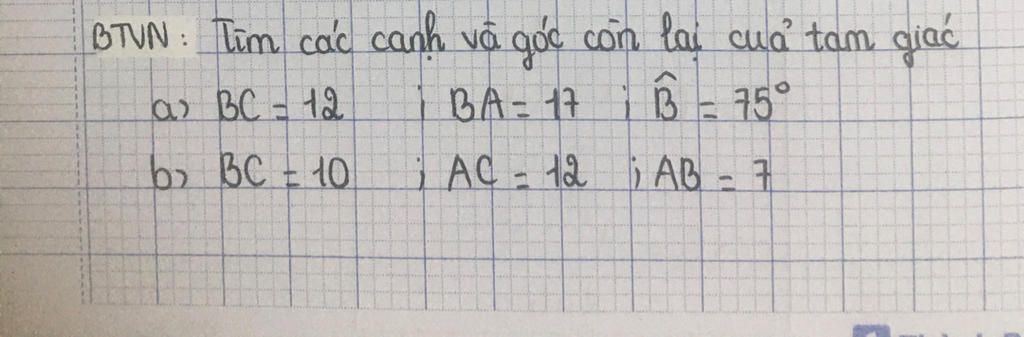 BTVN: Tìm các cạnh và góc còn lại của tam giác
a) BC = 12 ; BA = 17 ; B̂ = 75°
b) BC = 10 ; AC = 12 ; AB = 7